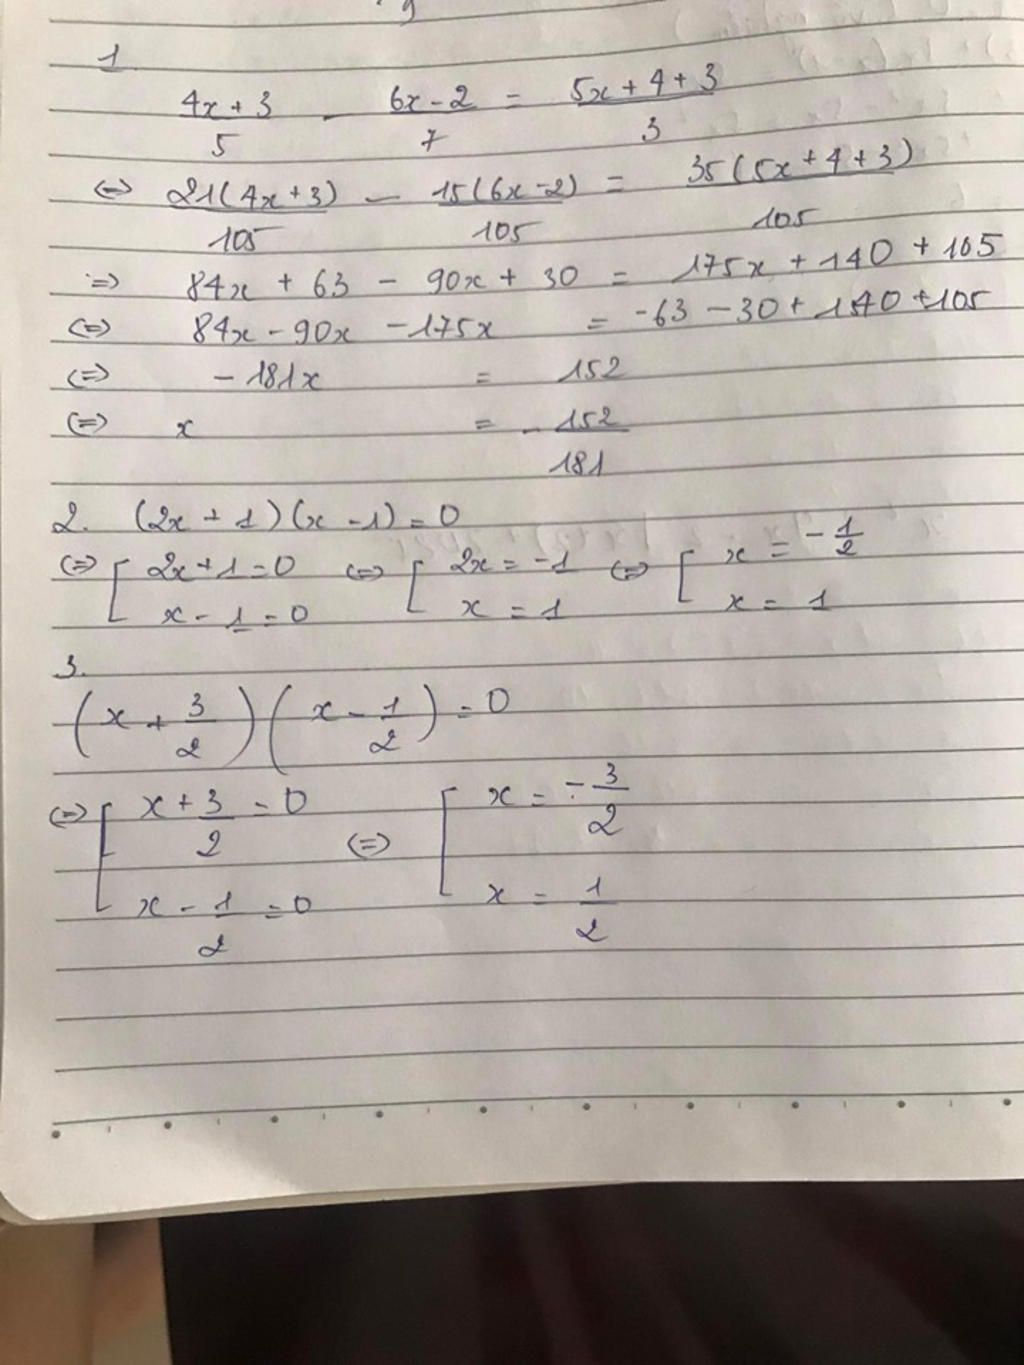 1
4x + 3 - 6x - 2 = 5x + 4 + 3
5 7 3
<=> 21(4x + 3) - 15(6x - 2) = 35(5x + 4 + 3)
105 105 105
=> 84x + 63 - 90x + 30 = 175x + 140 + 105
<=> 84x - 90x - 175x = -63 - 30 + 140 + 105
<=> - 181x = 152
<=> x = - 152
181
2. (2x + 1)(x - 1) = 0
<=> [ 2x + 1 = 0 <=> [ 2x = -1 <=> [ x = - 1/2
x - 1 = 0 x = 1 x = 1
3.
(x + 3/2)(x - 1/2) = 0
<=> [ x + 3/2 = 0 <=> [ x = - 3/2
x - 1/2 = 0 x = 1/2